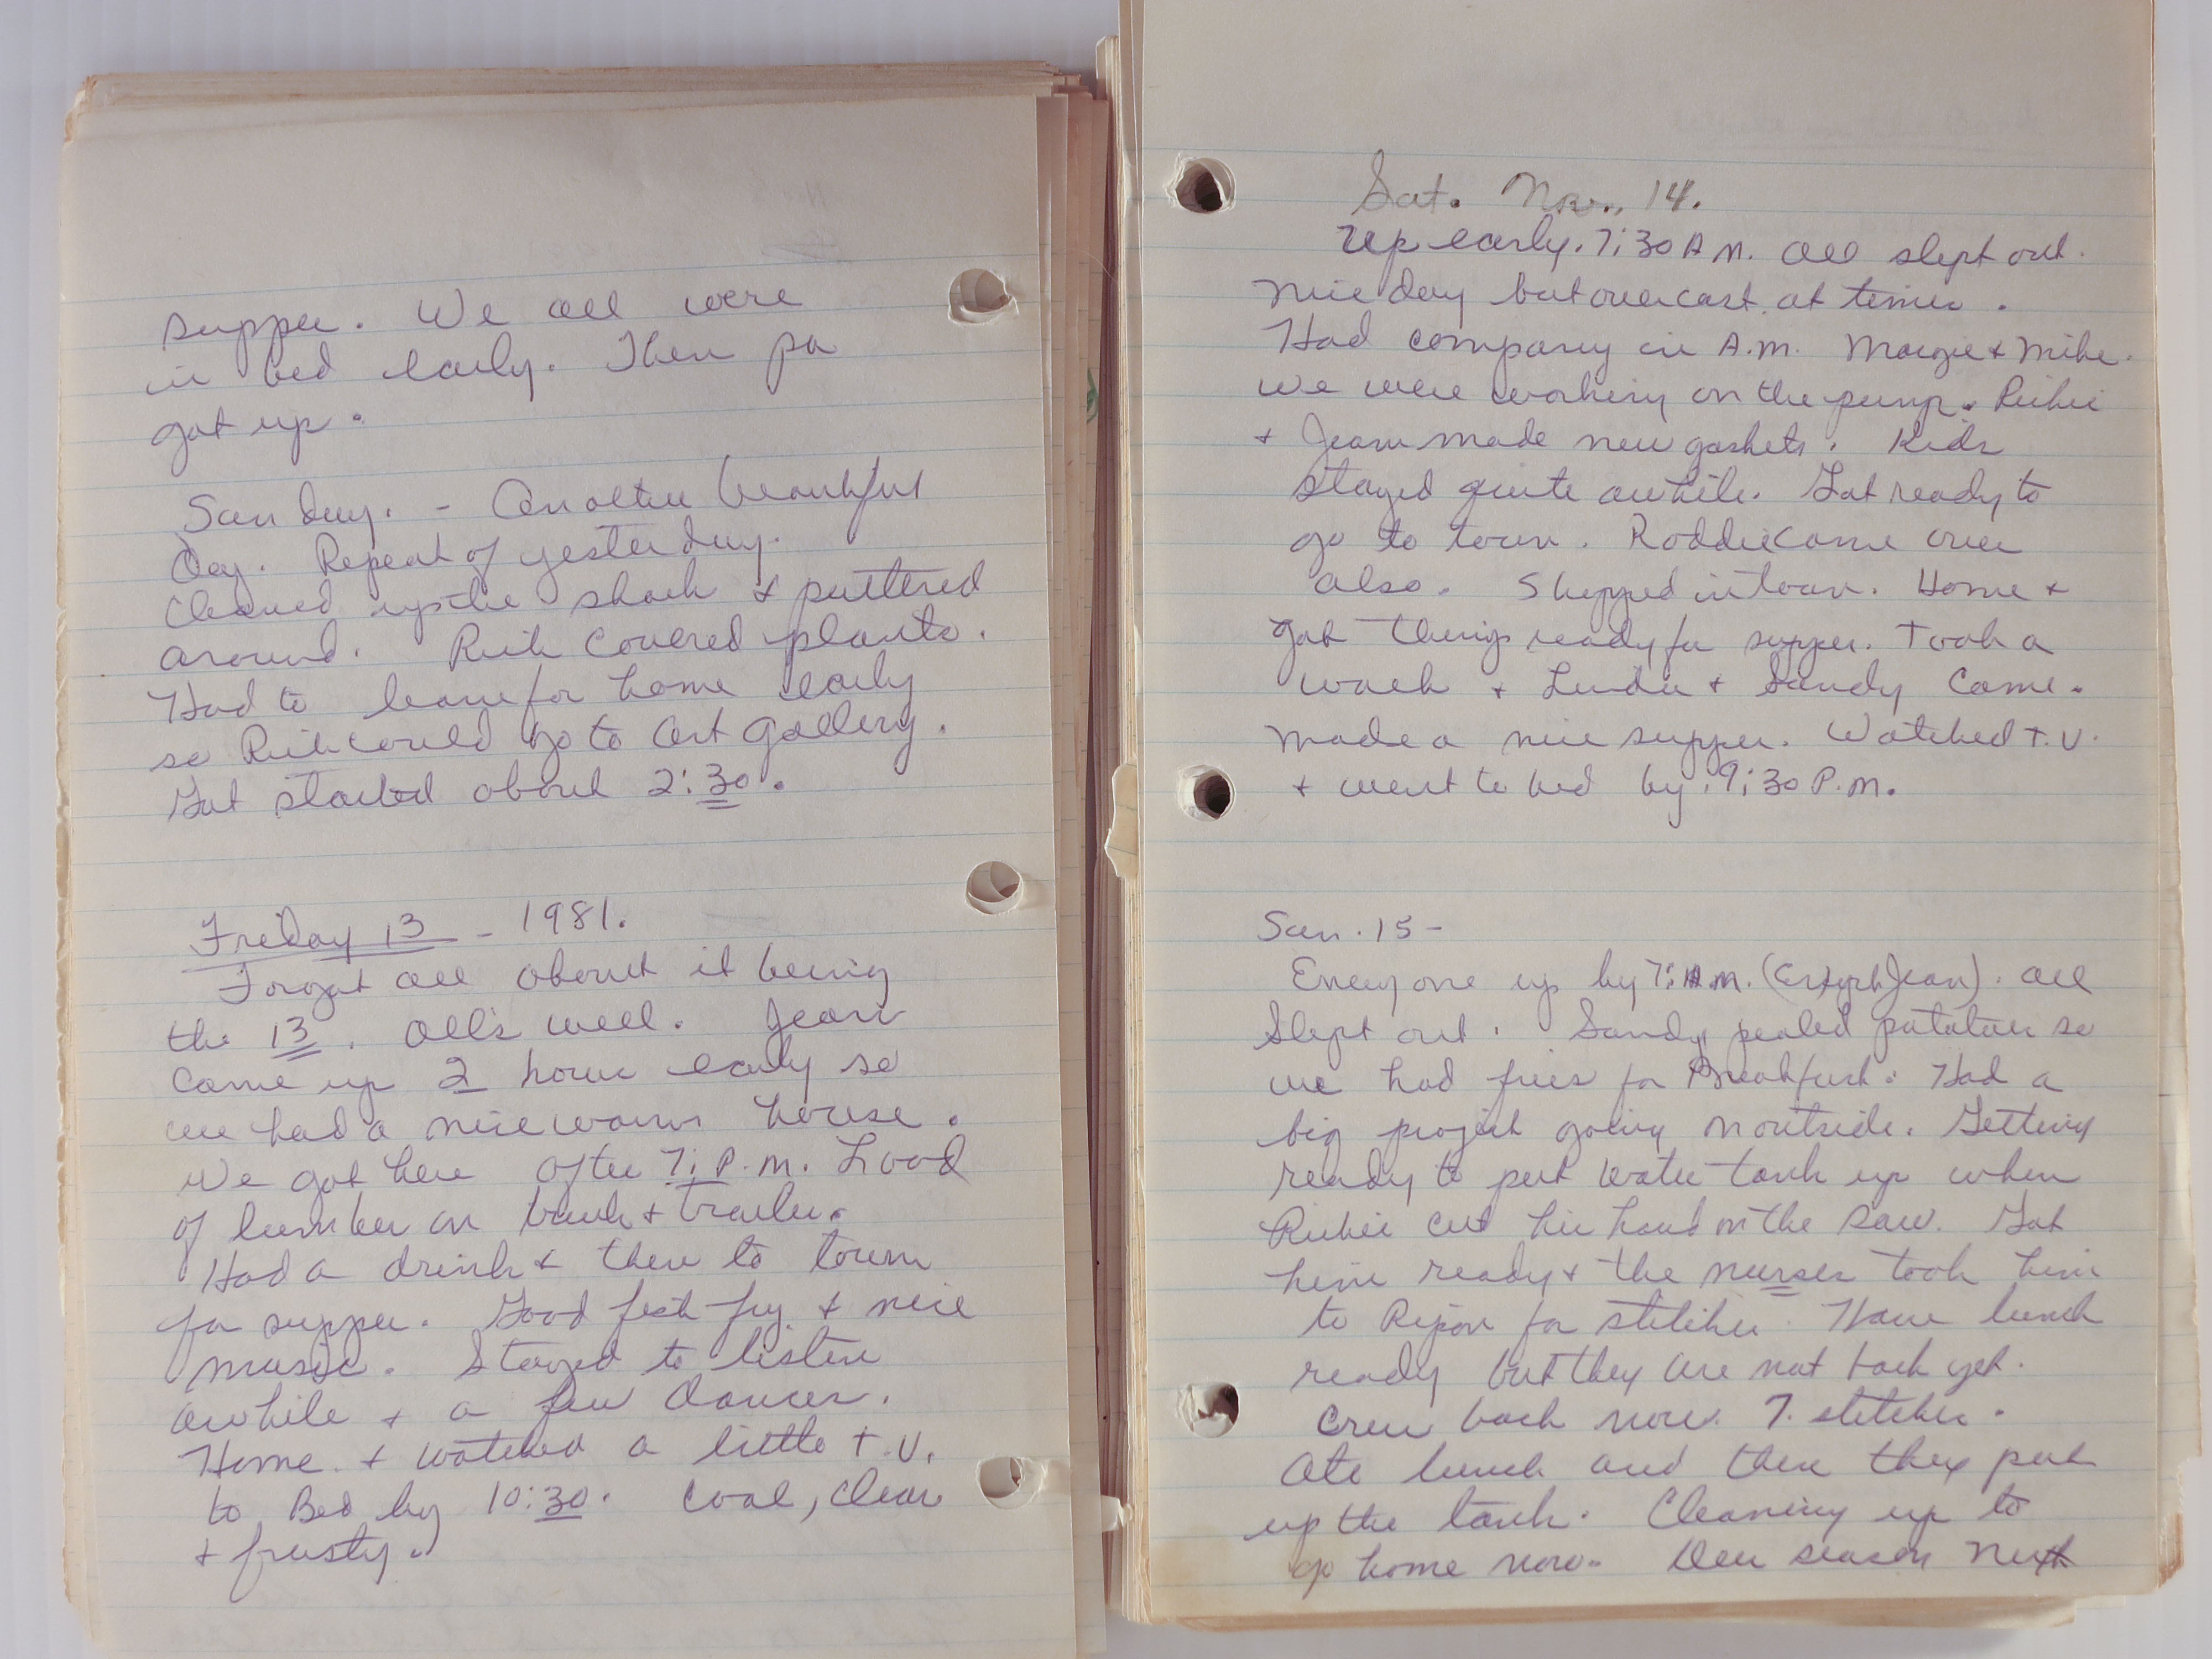 supper. We all were
in bed early. Then pa
got up.
Sunday. - Another beautiful
Day. Repeat of yesterday.
Cleaned up the shack & puttered
around. Rich covered plants.
Had to leave for home early
so Rich could go to Art Gallery.
Got started about 2:30.
Friday 13 - 1981.
Forgot all about it being
the 13. All's well. Jean
came up 2 hours early so
we had a nice warm house.
We got here after 7: P.M. Load
of lumber on truck & trailer.
Had a drink & then to town
for supper. Good fish fry & nice
music. Stayed to listen
awhile & a few dances.
Home. & watched a little T.V.
to Bed by 10:30. Cool, clear
& frosty.
Sat. Nov. 14.
Up early. 7:30 A.M. All slept out.
Nice day but overcast at times.
Had company in A.M. Margie & Mike.
We were working on the pump. Richie
& Jean made new gaskets. Kids
stayed quite awhile. Got ready to
go to town. Roddie came over
also. Shopped in town. Home &
got things ready for supper. Took a
walk & Linda & Sandy came.
Made a nice supper. Watched T.V.
& went to bed by 9:30 P.M.
Sun. 15 -
Everyone up by 7: A.M. (Except Jean). All
slept out. Sandy pealed potatoes so
we had fries for Breakfast. Had a
big project going on outside. Getting
ready to put water tank up when
Richie cut his hand on the saw. Got
him ready & the nurses took him
to Ripon for stitches. Have lunch
ready but they are not back yet.
Crew back now. 7. stitches.
Ate lunch and then they put
up the tank. Cleaning up to
go home now. Deer season next